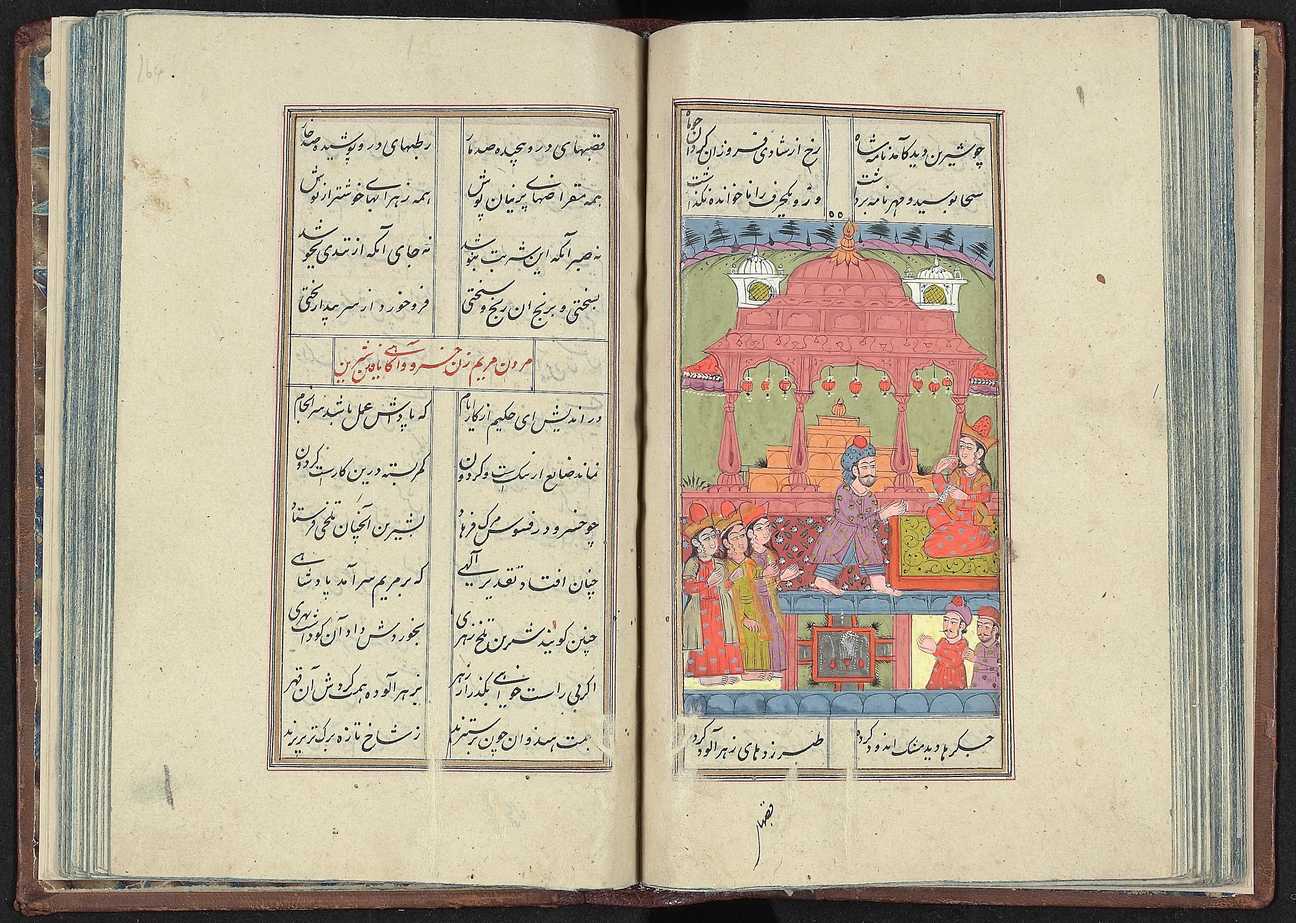 چو شیرین دید کآمد نامه شاه رخ از شادی فروزان کرد چون ماه
سجا بوسید و مهر نامه برداشت وزو یکحرف را ناخوانده نگذاشت
جگرها دید مشک اندود کرده طبرزدهای زهرآلود کرده
قصبها
قصبهای درو پیچیده صد مار رطبهای درو پوشیده صد خار
همه مقراضهای پرنیان پوش همه زهرابهای خوشتر از نوش
نه صبر آنکه این شربت بنوشد نه جای آنکه از تندی بجوشد
بسختی و برنج آن رنج و سختی فرو خورد از سر بیداربختی
مردن مریم زن خسرو و آگاهی یافتن شیرین
در اندیش ای حکیم از کار ایام که پاداش عمل باشد سرانجام
نماند ضایع ار نیکست و کر دون کمر بسته درین کارست کردون
چو خسرو در فسوس مرک فرهاد بشیرین آنچنان تلخی فرستاد
چنان افتاد تقدیر الهی که بر مریم سر آمد پادشاهی
چنین کویند شیرین تلخ زهری بخوردش داد آن کو داشت بهری
اکر می راست خواهی بکذر از زهر بزهرآلوده همت کردش آن قهر
بهمت هندوان چون برستیزند ز شاخ تازه برک تر بریزند